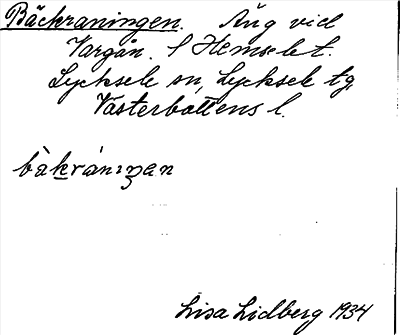 Bäckraningen. Äng vid
Vargån. S Hemselet.
Lycksele sn, Lycksele tg,
Västerbottens l.
bàkránıŋan
Lisa Lidberg 1934